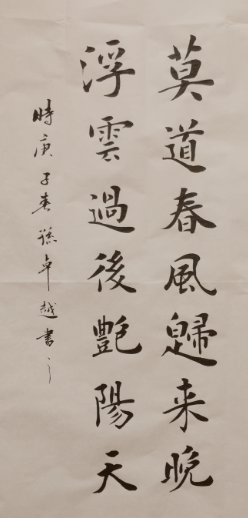 莫道春風歸来晚
浮雲過後艷陽天
時庚子春孫卓越書之